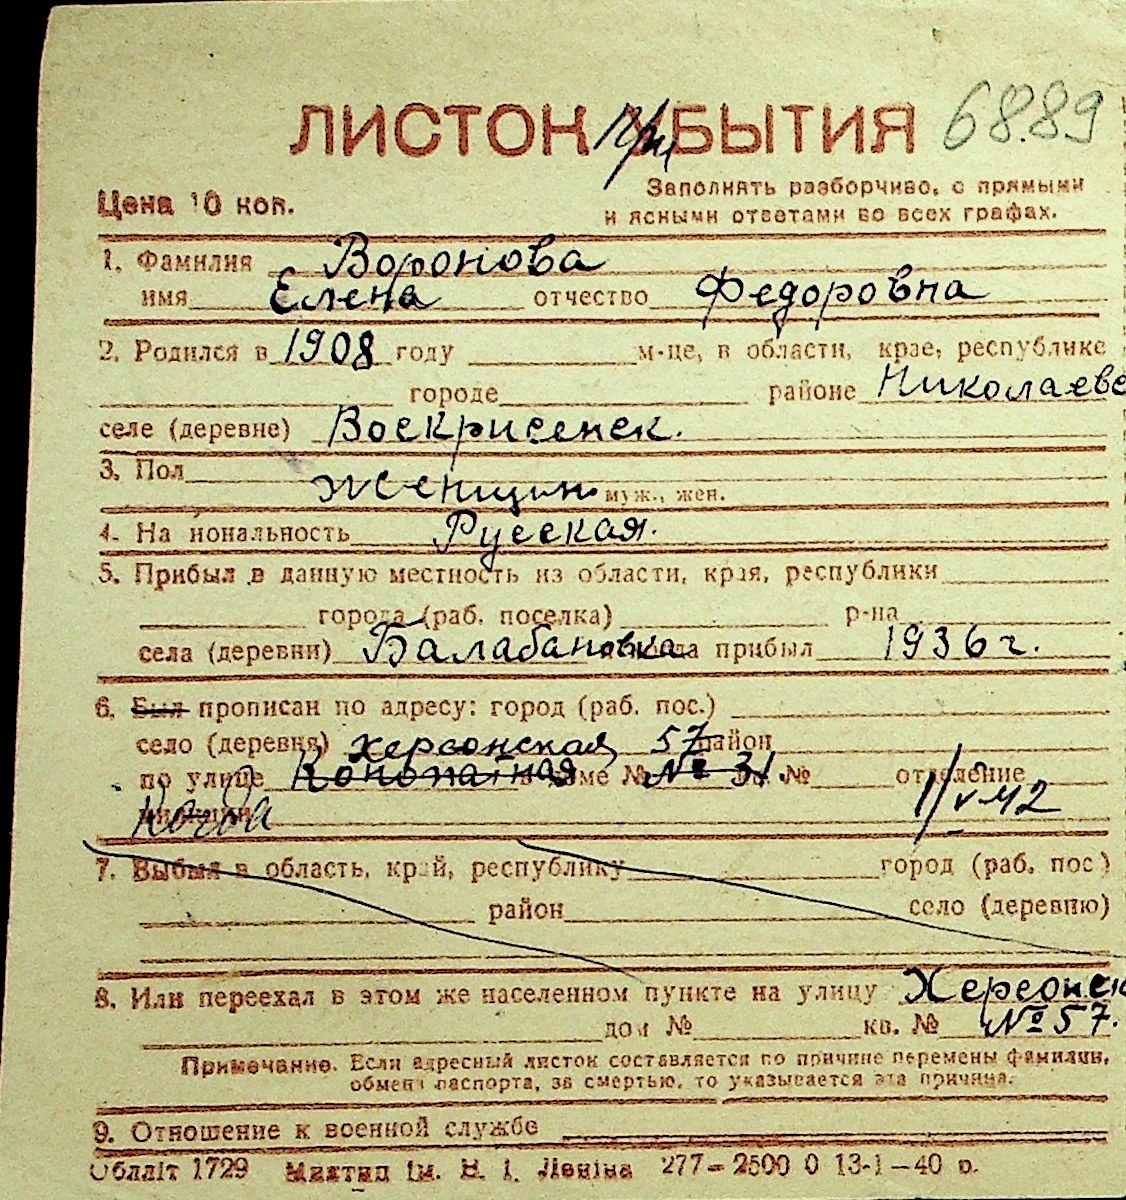 ЛИСТОК УБЫТИЯ 6889
Цена 10 коп.
Заполнять разборчиво, с прямыми
и ясными ответами во всех графах.
1. Фамилия Воронова
имя Елена отчество Федоровна
2. Родился в 1908 году м-це, в области, крае, республике
городе районе Николаевс
селе (деревне) Воскрисенск.
3. Пол женщин муж., жен.
4. Национальность Русская.
5. Прибыл в данную местность из области, края, республики
города (раб. поселка) р-на
села (деревни) Балабановка когда прибыл 1936 г.
6. Был прописан по адресу: город (раб. пос.)
село (деревня) херсонская 57 район
по улице Конопатная доме № № 31. кв. № отделение
милиции Когда 1/V-42
7. Выбыл в область, край, республику город (раб. пос.)
район село (деревню)
8. Или переехал в этом же населенном пункте на улицу Херсонск
дом № кв. № № 57.
Примечание. Если адресный листок составляется по причине перемены фамилии,
обмена паспорта, за смертью, то указывается эта причина.
9. Отношение к военной службе
Обліт 1729 Миктип ім. В. І. Леніна 277–2500 0 13-1–40 р.